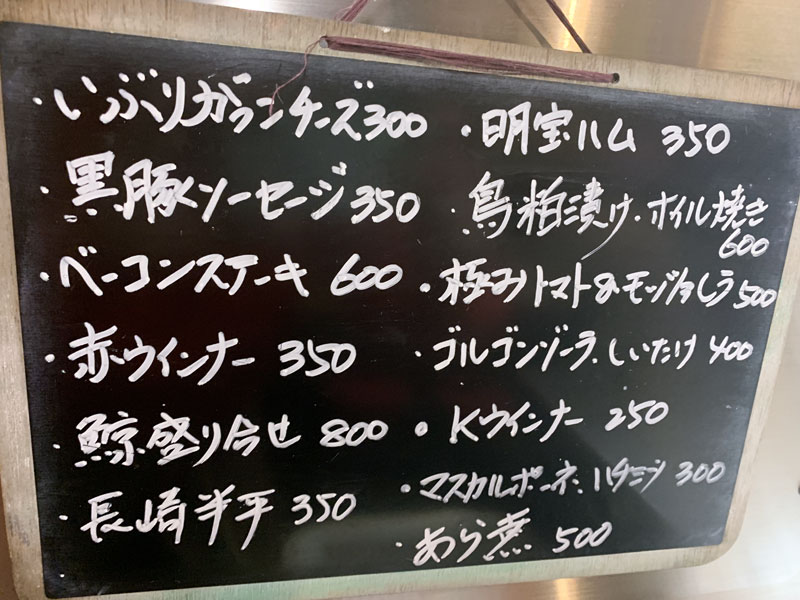 ・いぶりガランチーズ300
・黒豚ソーセージ350
・ベーコンステーキ 600
・赤ウインナー 350
・鯨盛り合せ 800
・長崎半平 350
・明宝ハム 350
・鳥粕漬け・ホイル焼き
600
・極みトマト&モッツァレラ 500
・ゴルゴンゾーラ、しいたけ 400
・Kウインナー 250
・マスカルポーネ、ハチミツ 300
・あら煮 500